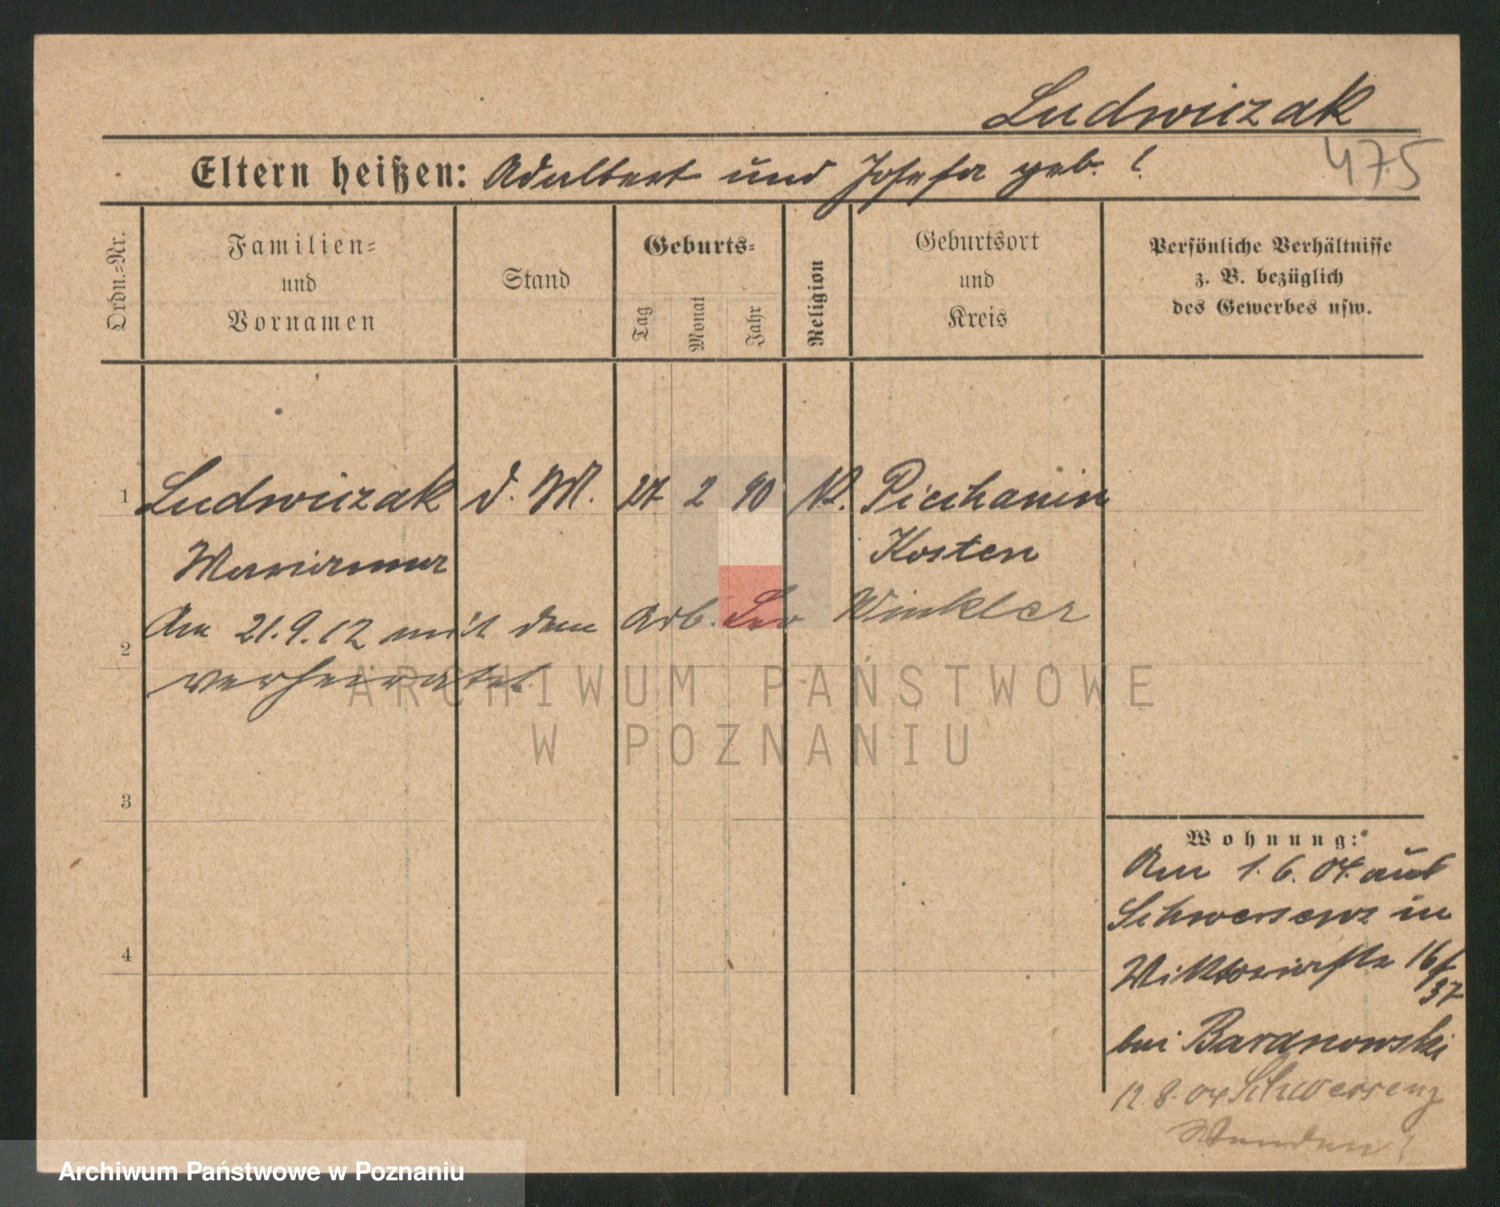 Ludwiczak
475
Eltern heißen: Adalbert und Josefa geb. ?
Ordn.-Nr.
Familien-
und
Vornamen
Stand
Geburts-
Tag
Monat
Jahr
Religion
Geburtsort
und
Kreis
Persönliche Verhältnisse
z. B. bezüglich
des Gewerbes usw.
1 Ludwiczak d. M. 27 2 90 Piechanin
Marianna Kosten
Am 21.9.12 mit dem Arb. Leo Winkler
2
verheiratet.
ARCHIWUM PAŃSTWOWE
W POZNANIU
3
Wohnung:
Am 1.6.04. aus
Schwersenz in
16/
37
4
bei Baranowski
12.8.04 Schwersenz
Archiwum Państwowe w Poznaniu